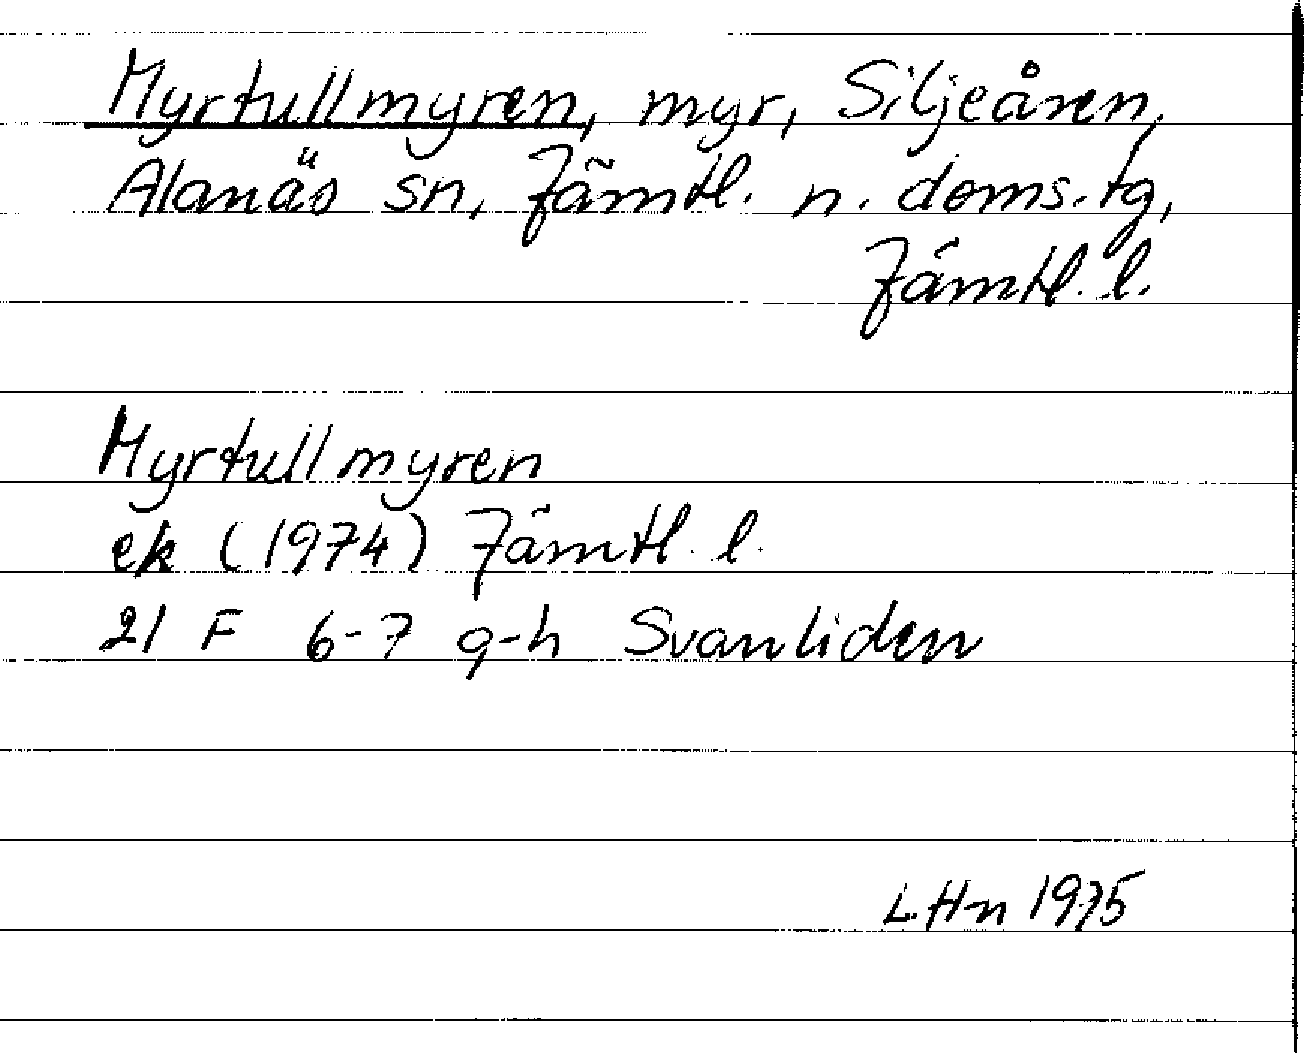 Myrtullmyren, myr, Siljeåsen,
Alanäs sn, Jämtl. n. doms.tg,
Jämtl. l.
Myrtullmyren
ek (1974) Jämtl. l.
21 F 6-7 g-h Svanliden
L.Hn 1975